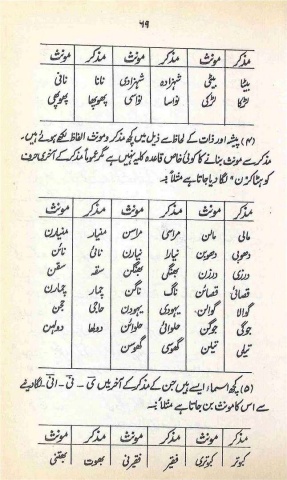 ۶۹
مذکر مونث مذکر مونث مذکر مونث
بیٹا بیٹی شہزادہ شہزادی نانا نانی
لڑکا لڑکی نواسا نواسی پھوپھا پھوپھی
(۴) پیشہ اور ذات کے لحاظ سے ذیل میں کچھ مذکر و مونث الفاظ لکھے ہوئے ہیں۔
مذکر سے مونث بنانے کا کوئی خاص قاعدہ کلیہ نہیں ہے مگر عموماً مذکر کے آخری حرف
کو ہٹا کر "ن" لگا دیا جاتا ہے مثلاً:۔
مذکر مونث مذکر مونث مذکر مونث
مالی مالن مراسی مراسن منیار منیارن
دھوبی دھوبن نیارا نیارن نائی نائن
درزی درزن بھنگی بھنگن سقہ سقن
قصائی قصائن ناگ ناگن چمار چمارن
گوالا گوالن یہودی یہودن حاجی حجن
جوگی جوگن حلوائی حلوائن دولھا دولہن
تیلی تیلن گھوسی گھوسن
(۵) کچھ اسماء ایسے ہیں جن کے مذکر کے آخر میں ی ۔ نی ۔ انی ۔ لگا دینے
سے اس کا مونث بن جاتا ہے مثلاً:۔
مذکر مونث مذکر مونث مذکر مونث
کبوتر کبوتری فقیر فقیرنی بھوت بھتنی